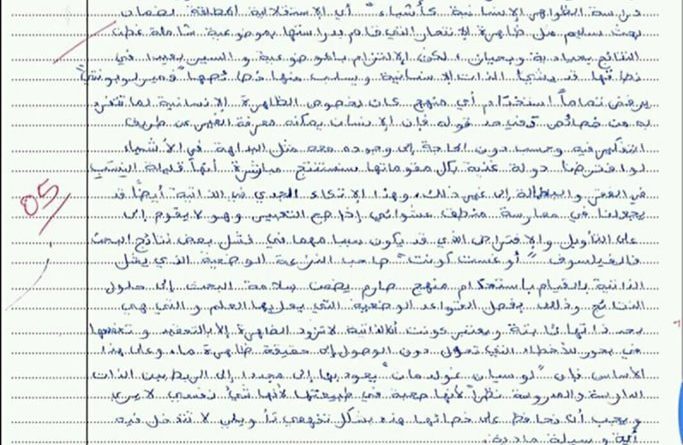 دراسة الظواهر الإنسانية كأشياء" أي الإستقلالية المطلقة لضمان
بحث سليم مثل ظاهرة الإنتحار التي قام بدراستها بموضوعية شاملة غطت
النتائج بعيادية وبحيان، لكن الإلتزام بالموضوعية و السير بعيدا في
نطاقها قد يشيئ الذات الإنسانية ويسلب منها خصائصها "فميرلوبونتي"
يرفض تماما استخدام أي منهج كان بخصوص الظاهرة الإنسانية لما تنفرد
به من خصائص فإن الإنسان يمكنه معرفة الغير عن طريق
التفكير فيه وحسب دون الحاجة إلى وجوده معه مثل البداهة في الأشياء
لو افترضنا دولة غنية بكل مقوماتها سنستنتج مباشرة أنها قليلة النسب
في الفقر والبطالة إلى غير ذلك، وهذا الإتكاء الجدي في الذاتية أيضا قد
يجعلنا في ممارسة منطق عشوائي خارج التعبير وهو لا يقوم إلى
على التأويل والإفتراض الذي قد يكون سببا مهما في فشل بعض نتائج البحث
فالفيلسوف "أوغست كونت" صاحب النزعة الوضعية الذي يشل
الذاتية بالقيام باستخدام منهج صارم يضمن سلامة البحث إلى حلول
النتائج وذلك بفضل القواعد الوضعية التي يمليها العلم و التي هي
بحد ذاتها ثابتة ويعتبر كونت أن الذاتية لا تزود الظاهرة إلا بالتعقيد و تضعها
في بحور الأخطاء التي تحول دون الوصول إلى حقيقة ظاهرة ما، وعلى هذا
الأساس فإن "لوسيان غولدمان" يعود بها إلى مجددا إلى الربط بين الذات
الدارسة والمدروسة نظرا لأنها صعبة في طبيعتها لأنها شيئ نفسي لا يرى
و يجب أن نحافظ على خصائصها هذه بشكل تفهمي تأويلي لا تتدخل فيه
أية وسيلة مادية.
05